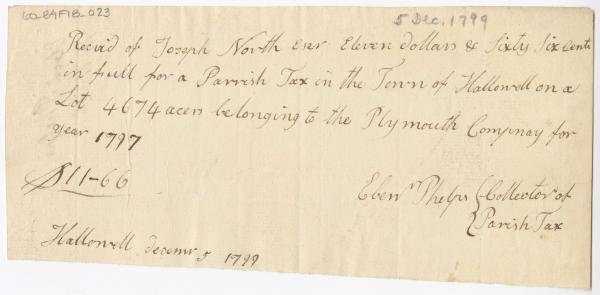 60-84F1B-023
5 Dec, 1799
Receivd of Joseph North esqr Eleven dollars & Sixty Six cents
in full for a Parrish Tax in the Town of Hallowell on a
Lot 4674 acers belonging to the Plymouth Compnay for
year 1797
$11-66
Ebenr Phelps { Collector of
Parish Tax
Hallowell decemr 5 1799